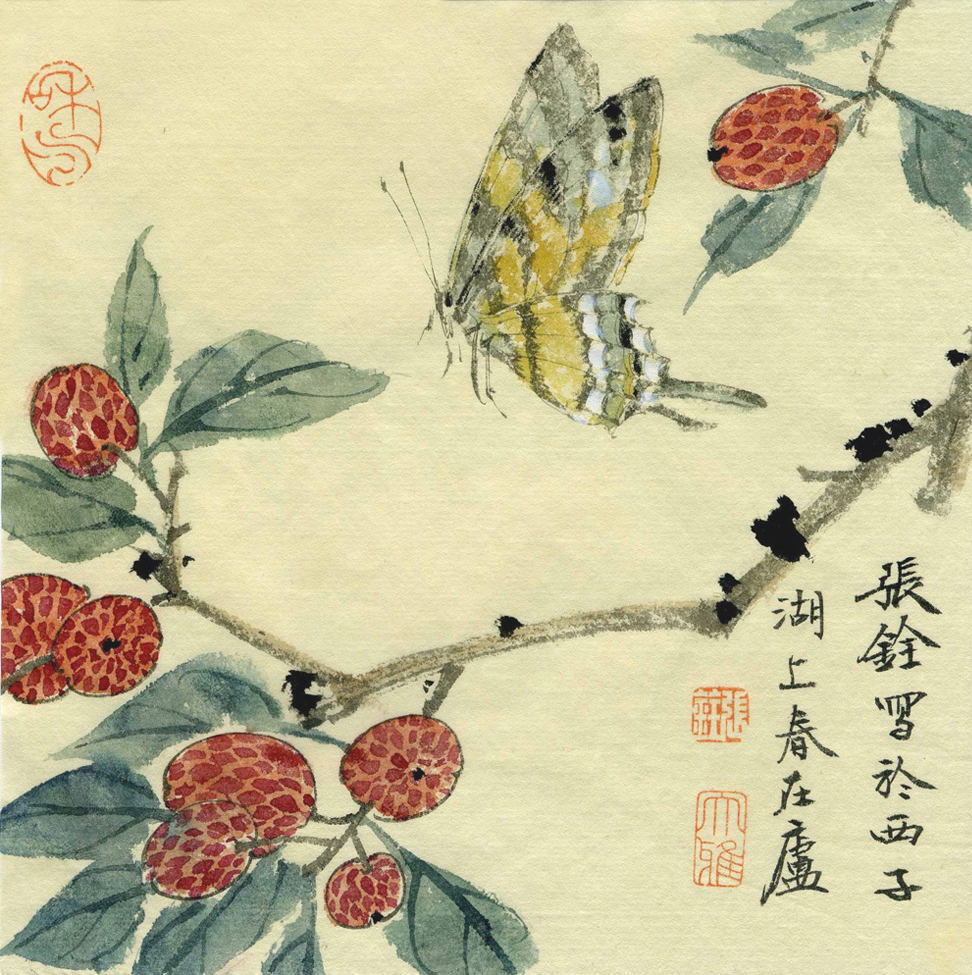 張銓寫於西子
湖上春在廬
大雅